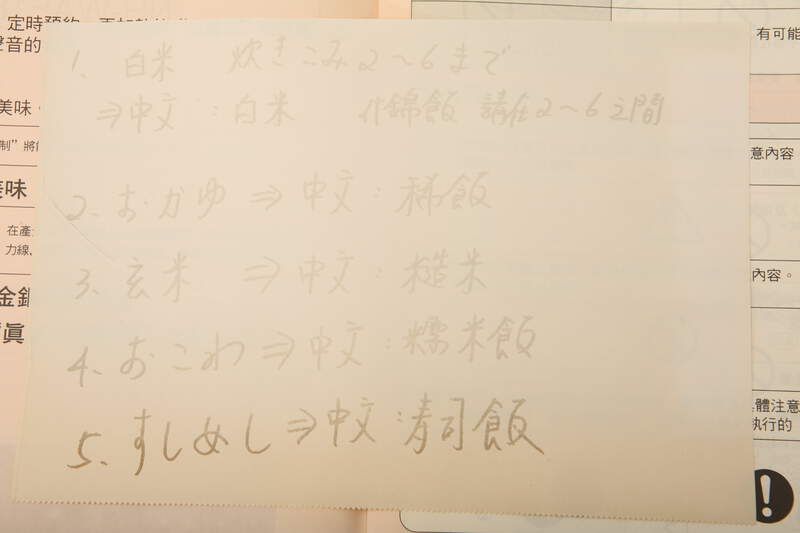 定時預約
聲音的
美味,
制”將
美味
在產
力線
金錍
真
1、白米 炊きこみ2～6まで
⇒中文：白米 什錦飯 請在2～6之間
2、おかゆ ⇒ 中文：稀飯
3、玄米 ⇒ 中文：糙米
4、おこわ ⇒ 中文：糯米飯
5、すしめし ⇒ 中文：寿司飯
有可能
意內容
內容。
體注意
執行的
!